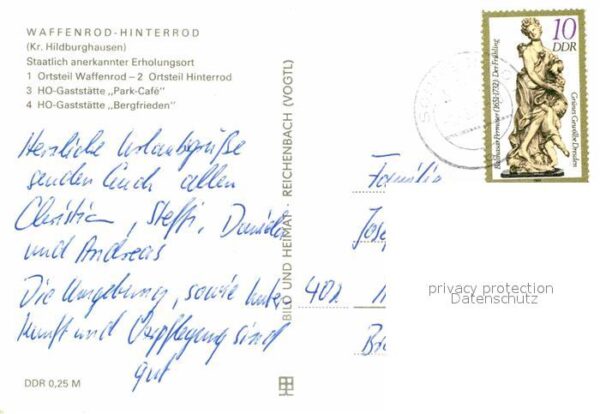 WAFFENROD-HINTERROD
(Kr. Hildburghausen)
Staatlich anerkannter Erholungsort
1 Ortsteil Waffenrod – 2 Ortsteil Hinterrod
3 HO-Gaststätte „Park-Café"
4 HO-Gaststätte „Bergfrieden"
Herzliche Urlaubgrüße
senden Euch allen
Christian, Steffi, Daniela
und Andreas
Die Umgebung, sowie Unter
kunft und Verpflegung sind
gut
DDR 0,25 M
BILD UND HEIMAT · REICHENBACH (VOGTL)
10
DDR
Balthasar Permoser (1651-1732) Der Frühling
Grünes Gewölbe Dresden
Familie
Jose
402
Br
privacy protection
Datenschutz